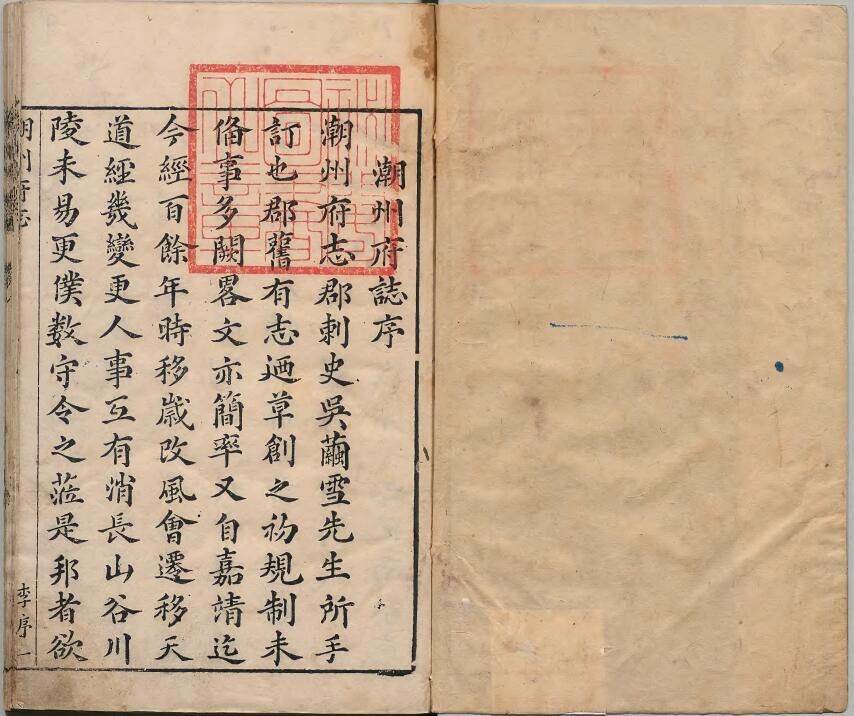 潮州府誌序
潮州府志郡刺史吳繭雪先生所手
訂也郡舊有志迺草創之初規制未
偹事多闕畧文亦簡率又自嘉靖迄
今經百餘年時移歲改風會遷移天
道經幾變更人事互有消長山谷川
陵未易更僕数守令之蒞是邦者欲
潮州府志
李序一